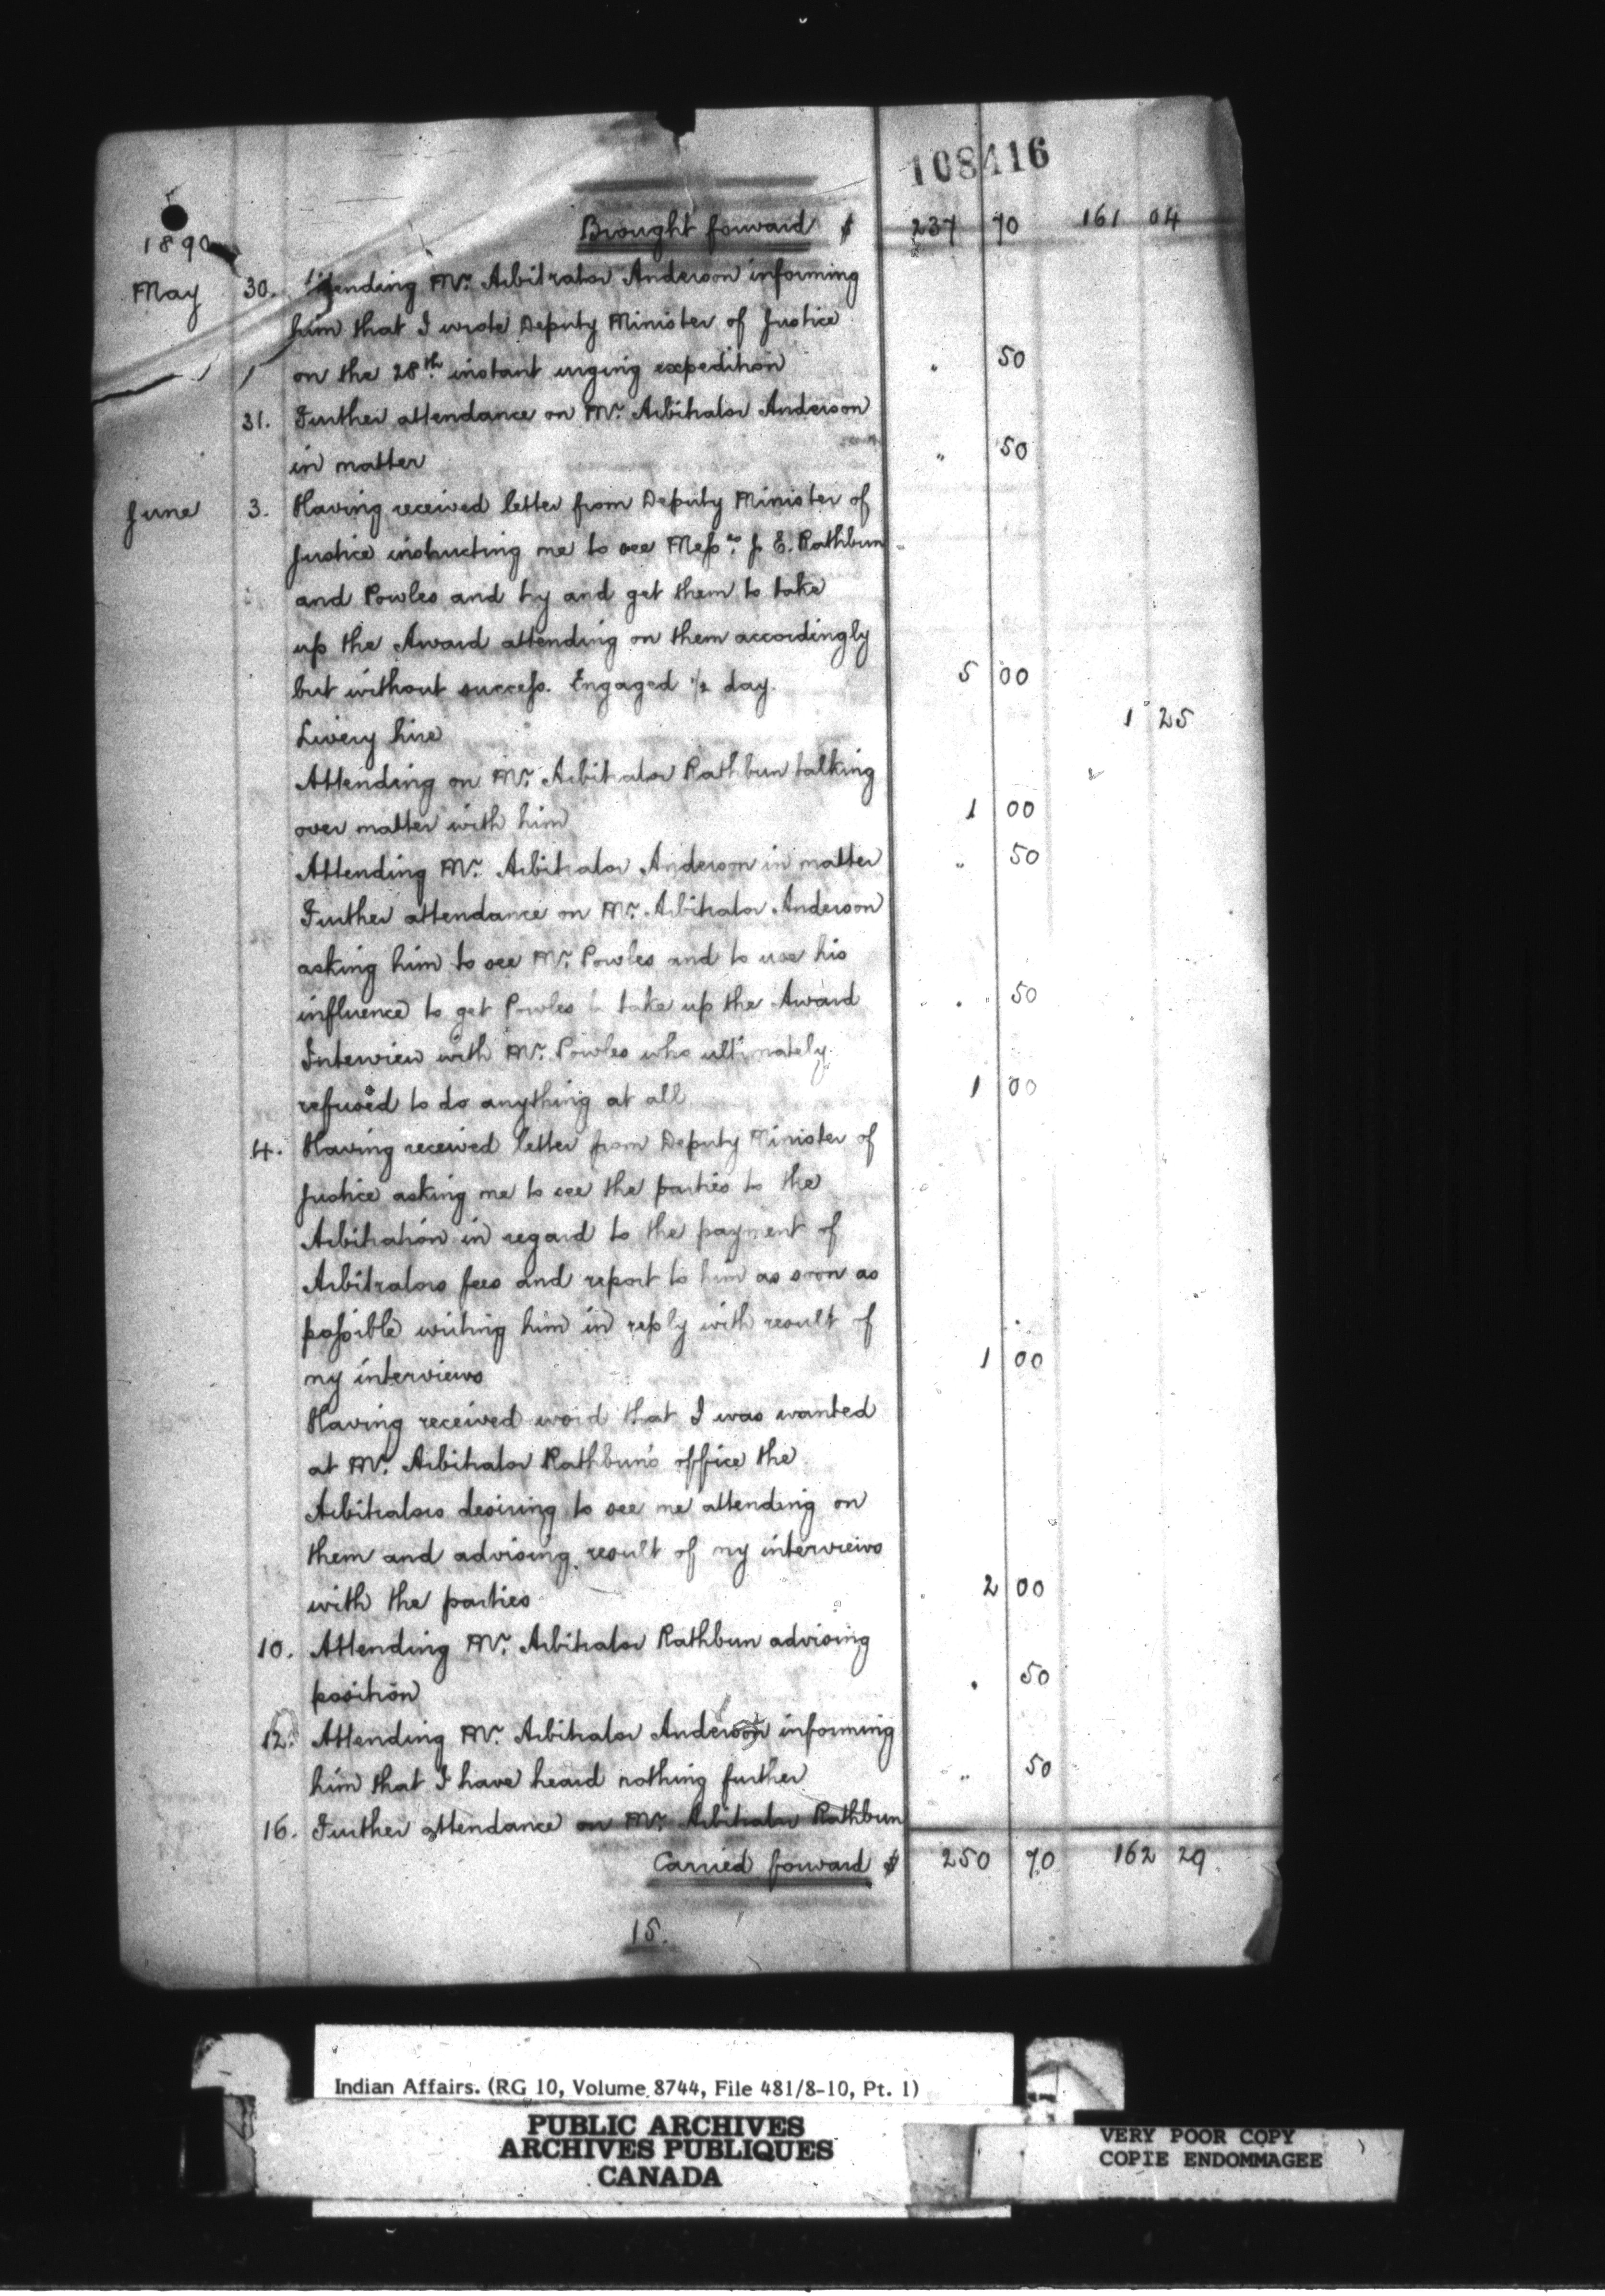 108416
Brought forward $ 237 70 161 04
1890
May 30. Attending Mr. Arbitrator Anderson informing
him that I wrote Deputy Minister of Justice
on the 28th instant urging expedition " 50
31. Further attendance on Mr. Arbitrator Anderson
in matter " 50
June 3. Having received letter from Deputy Minister of
Justice instructing me to see Messrs. J. E. Rathbun
and Powles and try and get them to take
up the Award attending on them accordingly
but without success. Engaged ½ day. 5 00
Livery hire 1 25
Attending on Mr. Arbitrator Rathbun talking
over matter with him 1 00
Attending Mr. Arbitrator Anderson in matter " 50
Further attendance on Mr. Arbitrator Anderson
asking him to see Mr. Powles and to use his
influence to get Powles to take up the Award " 50
Interview with Mr. Powles who ultimately
refused to do anything at all 1 00
4. Having received letter from Deputy Minister of
Justice asking me to see the parties to the
Arbitration in regard to the payment of
Arbitrators fees and report to him as soon as
possible writing him in reply with result of
my interviews 1 00
Having received word that I was wanted
at Mr. Arbitrator Rathbun's office the
Arbitrators desiring to see me attending on
them and advising result of my interviews
with the parties 2 00
10. Attending Mr. Arbitrator Rathbun advising
position " 50
12. Attending Mr. Arbitrator Anderson informing
him that I have heard nothing further " 50
16. Further attendance on Mr. Arbitrator Rathbun
Carried forward $ 250 70 162 29
15.
Indian Affairs. (RG 10, Volume 8744, File 481/8-10, Pt. 1)
PUBLIC ARCHIVES
ARCHIVES PUBLIQUES
CANADA
VERY POOR COPY
COPIE ENDOMMAGEE